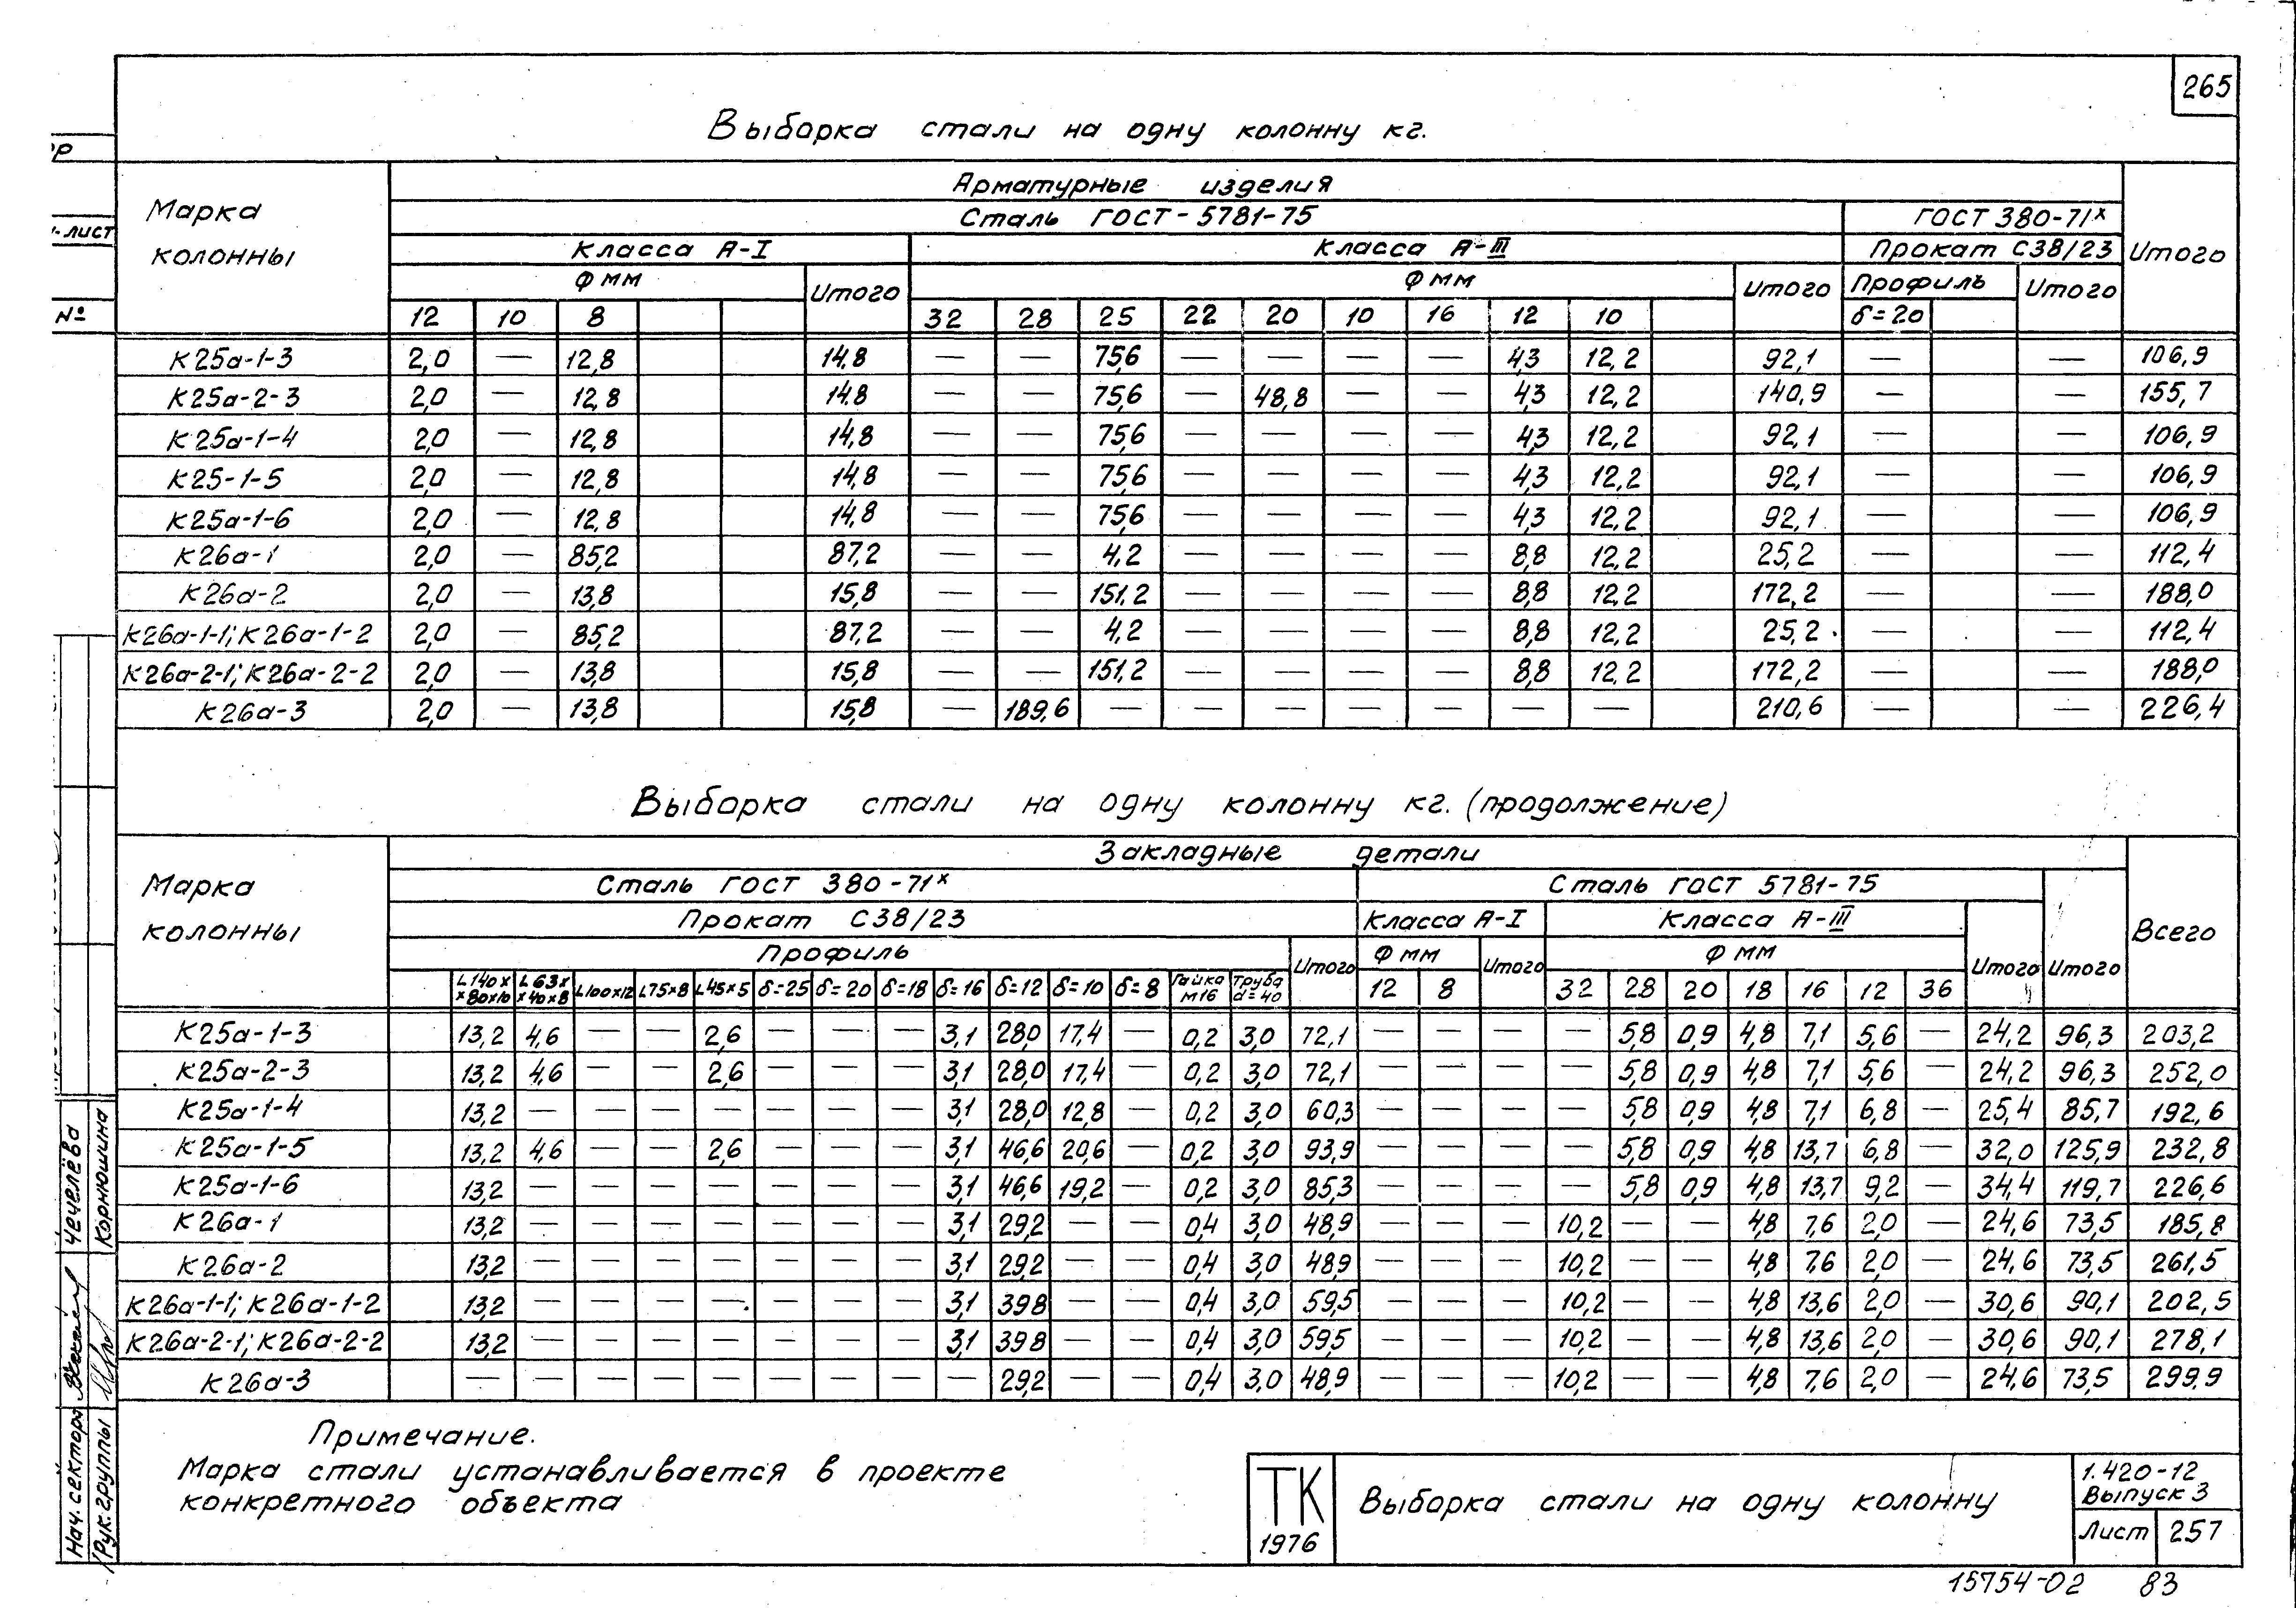 265
Выборка стали на одну колонну кг.
Марка колонны
Арматурные изделия
Сталь ГОСТ-5781-75
ГОСТ 380-71ˣ
Итого
Класса А-I
Класса А-III
Прокат С38/23
Ф мм
Итого
Ф мм
Итого
Профиль
Итого
12 10 8
32 28 25 22 20 10 16 12 10
δ=20
К25а-1-3 2,0 — 12,8 14,8 — — 75,6 — — — — 4,3 12,2 92,1 — — 106,9
К25а-2-3 2,0 — 12,8 14,8 — — 75,6 — 48,8 — — 4,3 12,2 140,9 — — 155,7
К25а-1-4 2,0 — 12,8 14,8 — — 75,6 — — — — 4,3 12,2 92,1 — — 106,9
К25-1-5 2,0 — 12,8 14,8 — — 75,6 — — — — 4,3 12,2 92,1 — — 106,9
К25а-1-6 2,0 — 12,8 14,8 — — 75,6 — — — — 4,3 12,2 92,1 — — 106,9
К26а-1 2,0 — 85,2 87,2 — — 4,2 — — — — 8,8 12,2 25,2 — — 112,4
К26а-2 2,0 — 13,8 15,8 — — 151,2 — — — — 8,8 12,2 172,2 — — 188,0
К26а-1-1; К26а-1-2 2,0 — 85,2 87,2 — — 4,2 — — — — 8,8 12,2 25,2 — — 112,4
К26а-2-1; К26а-2-2 2,0 — 13,8 15,8 — — 151,2 — — — — 8,8 12,2 172,2 — — 188,0
К26а-3 2,0 — 13,8 15,8 — 189,6 — — — — — — — 210,6 — — 226,4
Выборка стали на одну колонну кг. (продолжение)
Марка колонны
Закладные детали
Всего
Сталь ГОСТ 380-71ˣ
Сталь ГОСТ 5781-75
Прокат С38/23
Класса А-I
Класса А-III
Профиль
Итого
Ф мм
Итого
Ф мм
Итого
Итого
L140××80×10 L63××40×8 L100×12 L75×8 L45×5 δ=25 δ=20 δ=18 δ=16 δ=12 δ=10 δ=8 Гайка М16 Труба d=40
12 8
32 28 20 18 16 12 36
К25а-1-3 13,2 4,6 — — 2,6 — — — 3,1 28,0 17,4 — 0,2 3,0 72,1 — — — — 5,8 0,9 4,8 7,1 5,6 — 24,2 96,3 203,2
К25а-2-3 13,2 4,6 — — 2,6 — — — 3,1 28,0 17,4 — 0,2 3,0 72,1 — — — — 5,8 0,9 4,8 7,1 5,6 — 24,2 96,3 252,0
К25а-1-4 13,2 — — — — — — — 3,1 28,0 12,8 — 0,2 3,0 60,3 — — — — 5,8 0,9 4,8 7,1 6,8 — 25,4 85,7 192,6
К25а-1-5 13,2 4,6 — — 2,6 — — — 3,1 46,6 20,6 — 0,2 3,0 93,9 — — — — 5,8 0,9 4,8 13,7 6,8 — 32,0 125,9 232,8
К25а-1-6 13,2 — — — — — — — 3,1 46,6 19,2 — 0,2 3,0 85,3 — — — — 5,8 0,9 4,8 13,7 9,2 — 34,4 119,7 226,6
К26а-1 13,2 — — — — — — — 3,1 29,2 — — 0,4 3,0 48,9 — — — 10,2 — — 4,8 7,6 2,0 — 24,6 73,5 185,8
К26а-2 13,2 — — — — — — — 3,1 29,2 — — 0,4 3,0 48,9 — — — 10,2 — — 4,8 7,6 2,0 — 24,6 73,5 261,5
К26а-1-1; К26а-1-2 13,2 — — — — — — — 3,1 39,8 — — 0,4 3,0 59,5 — — — 10,2 — — 4,8 13,6 2,0 — 30,6 90,1 202,5
К26а-2-1; К26а-2-2 13,2 — — — — — — — 3,1 39,8 — — 0,4 3,0 59,5 — — — 10,2 — — 4,8 13,6 2,0 — 30,6 90,1 278,1
К26а-3 — — — — — — — — — 29,2 — — 0,4 3,0 48,9 — — — 10,2 — — 4,8 7,6 2,0 — 24,6 73,5 299,9
Примечание.
Марка стали устанавливается в проекте
конкретного объекта
ТК
1976
Выборка стали на одну колонну
1.420-12
Выпуск 3
Лист 257
15754-02 83
лист
№
Нач. сектора Чечелёва
Рук. группы Корнюшина